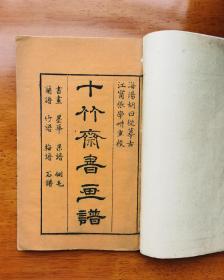 海陽胡曰從摹古
江甯張學畊重校
十竹齋書画譜
書畫 墨華 果譜 翎毛
蘭譜 竹譜 梅譜 石譜